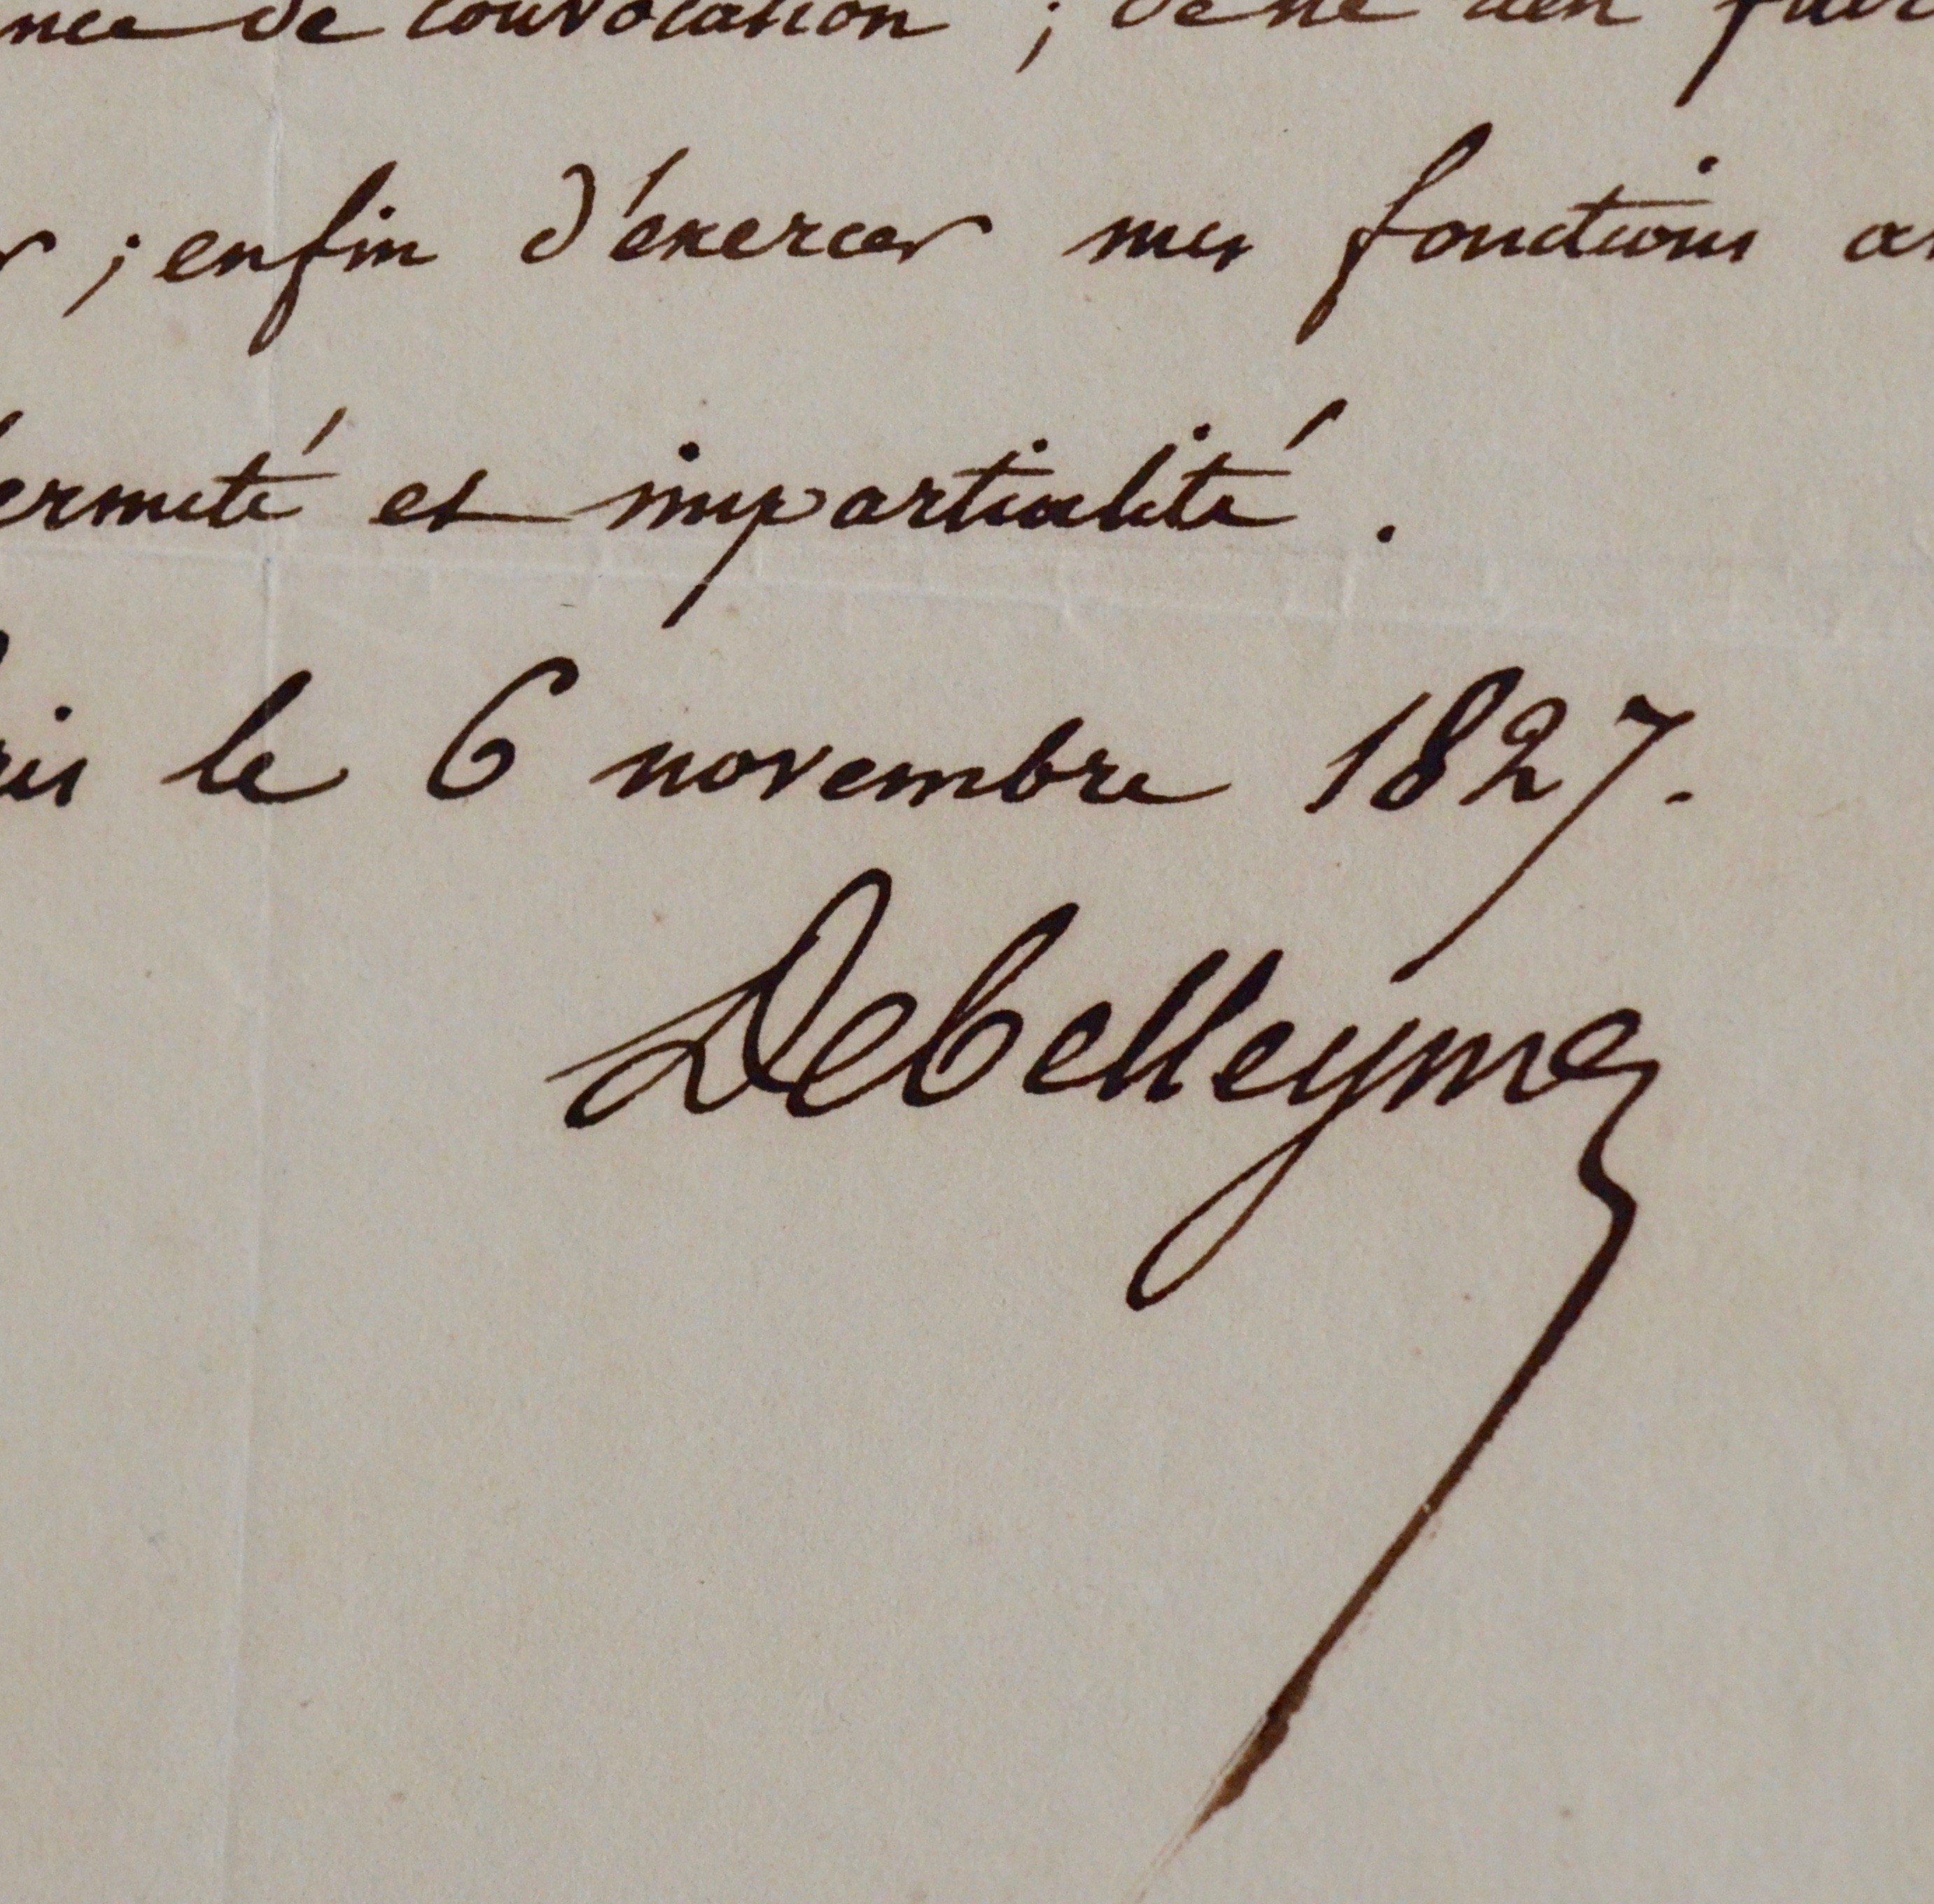 nce de convocation ; de ne rien faire
r ; enfin d'exercer mes fonctions a
ermeté et impartialité .
ris le 6 novembre 1827.
Debelleyme